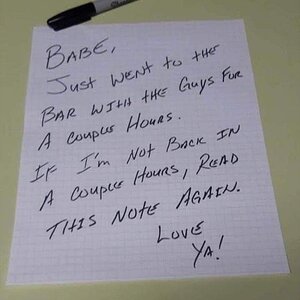 Babe,
Just went to the
Bar with the Guys for
A couple Hours.
If I'm not Back in
A couple Hours, Read
This Note Again.
Love
Ya!